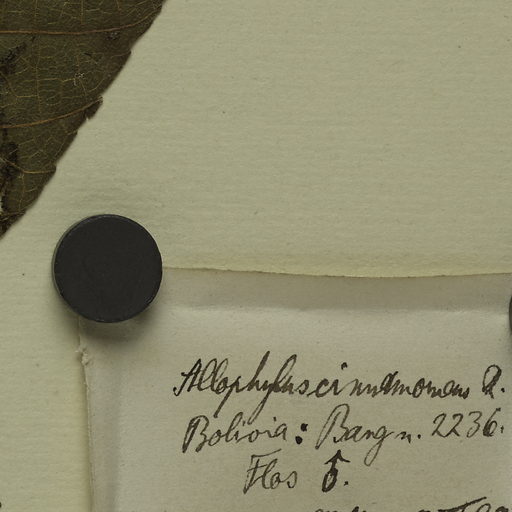 Allophylus cinnamomeus R.
Bolivia: Bang n. 2236.
Flos ♂.